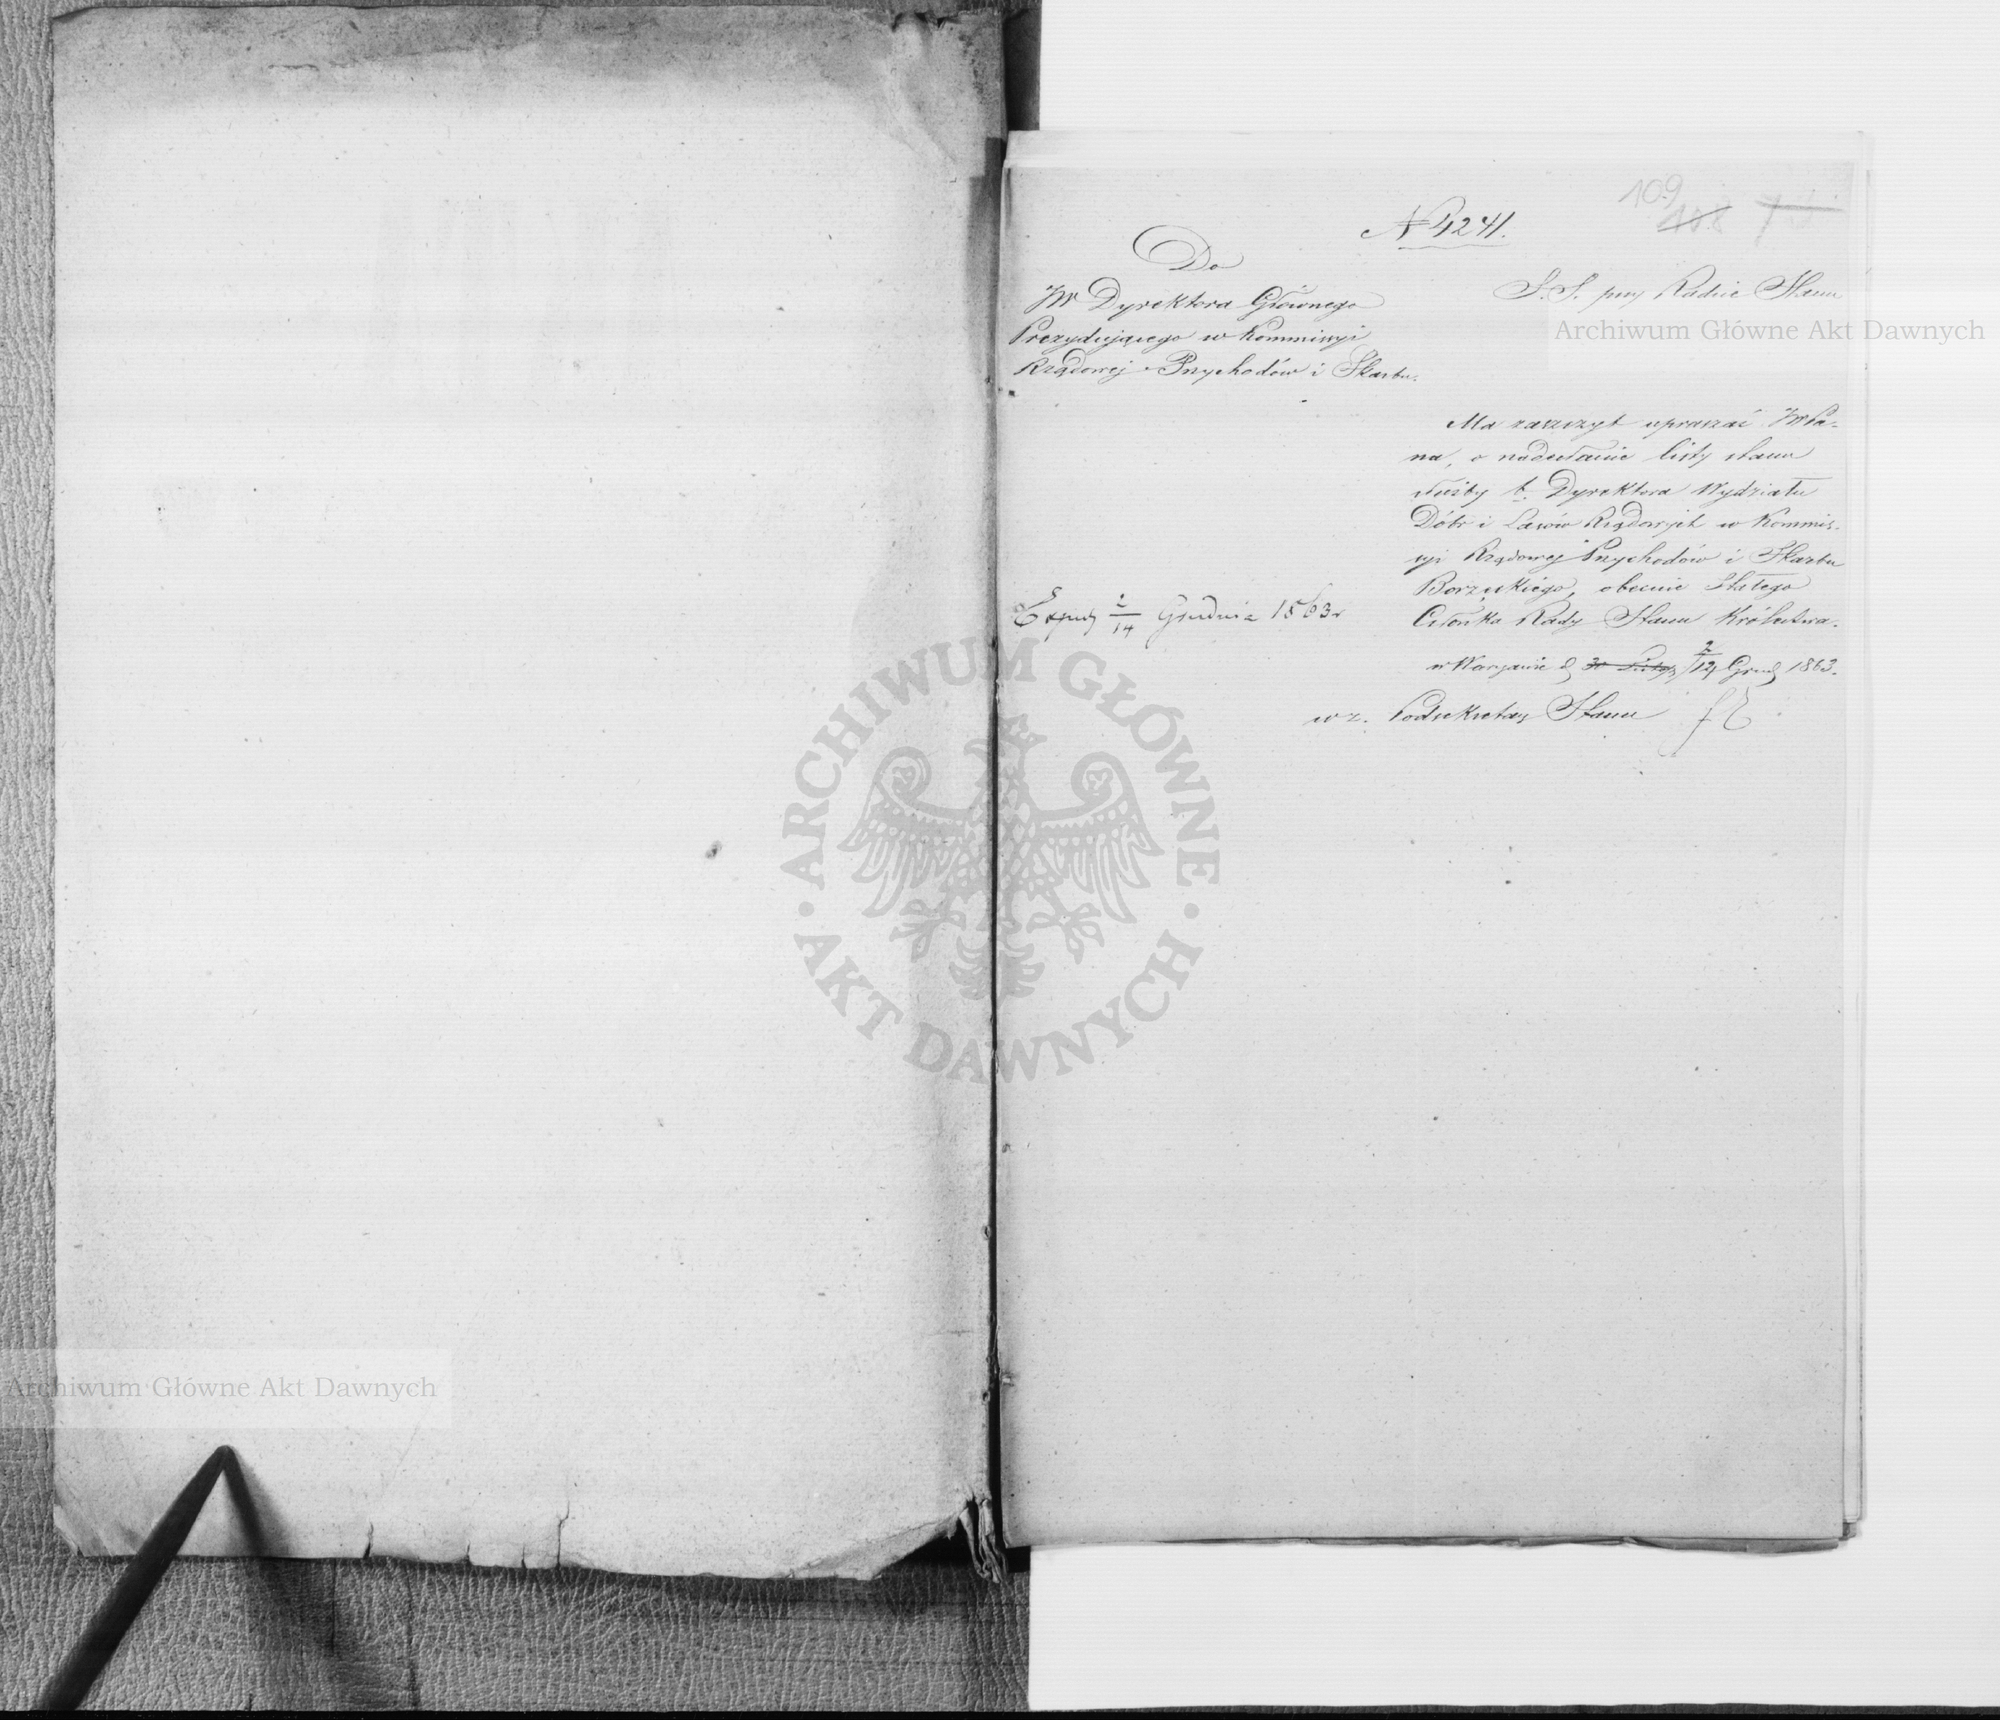 109
108
N 4241.
Do
JW Dyrektora Głównego
Prezydującego w Kommissyi
Rządowej Przychodów i Skarbu.
S. S. przy Radzie Stanu
Archiwum Główne Akt Dawnych
Ma zaszczyt upraszać JWPa-
na, o nadesłanie listy stanu
służby b. Dyrektora Wydziału
Dóbr i Lasów Rządowych w Kommis-
syi Rządowej Przychodów i Skarbu
Borzęckiego, obecnie Stałego
Członka Rady Stanu Królestwa.
Exped 2/14 Grudnia 1863 r
w Warszawie d 2/14 Grud 1863.
w z. Podsekretarz Stanu
ARCHIWUM GŁÓWNE
AKT DAWNYCH
Archiwum Główne Akt Dawnych